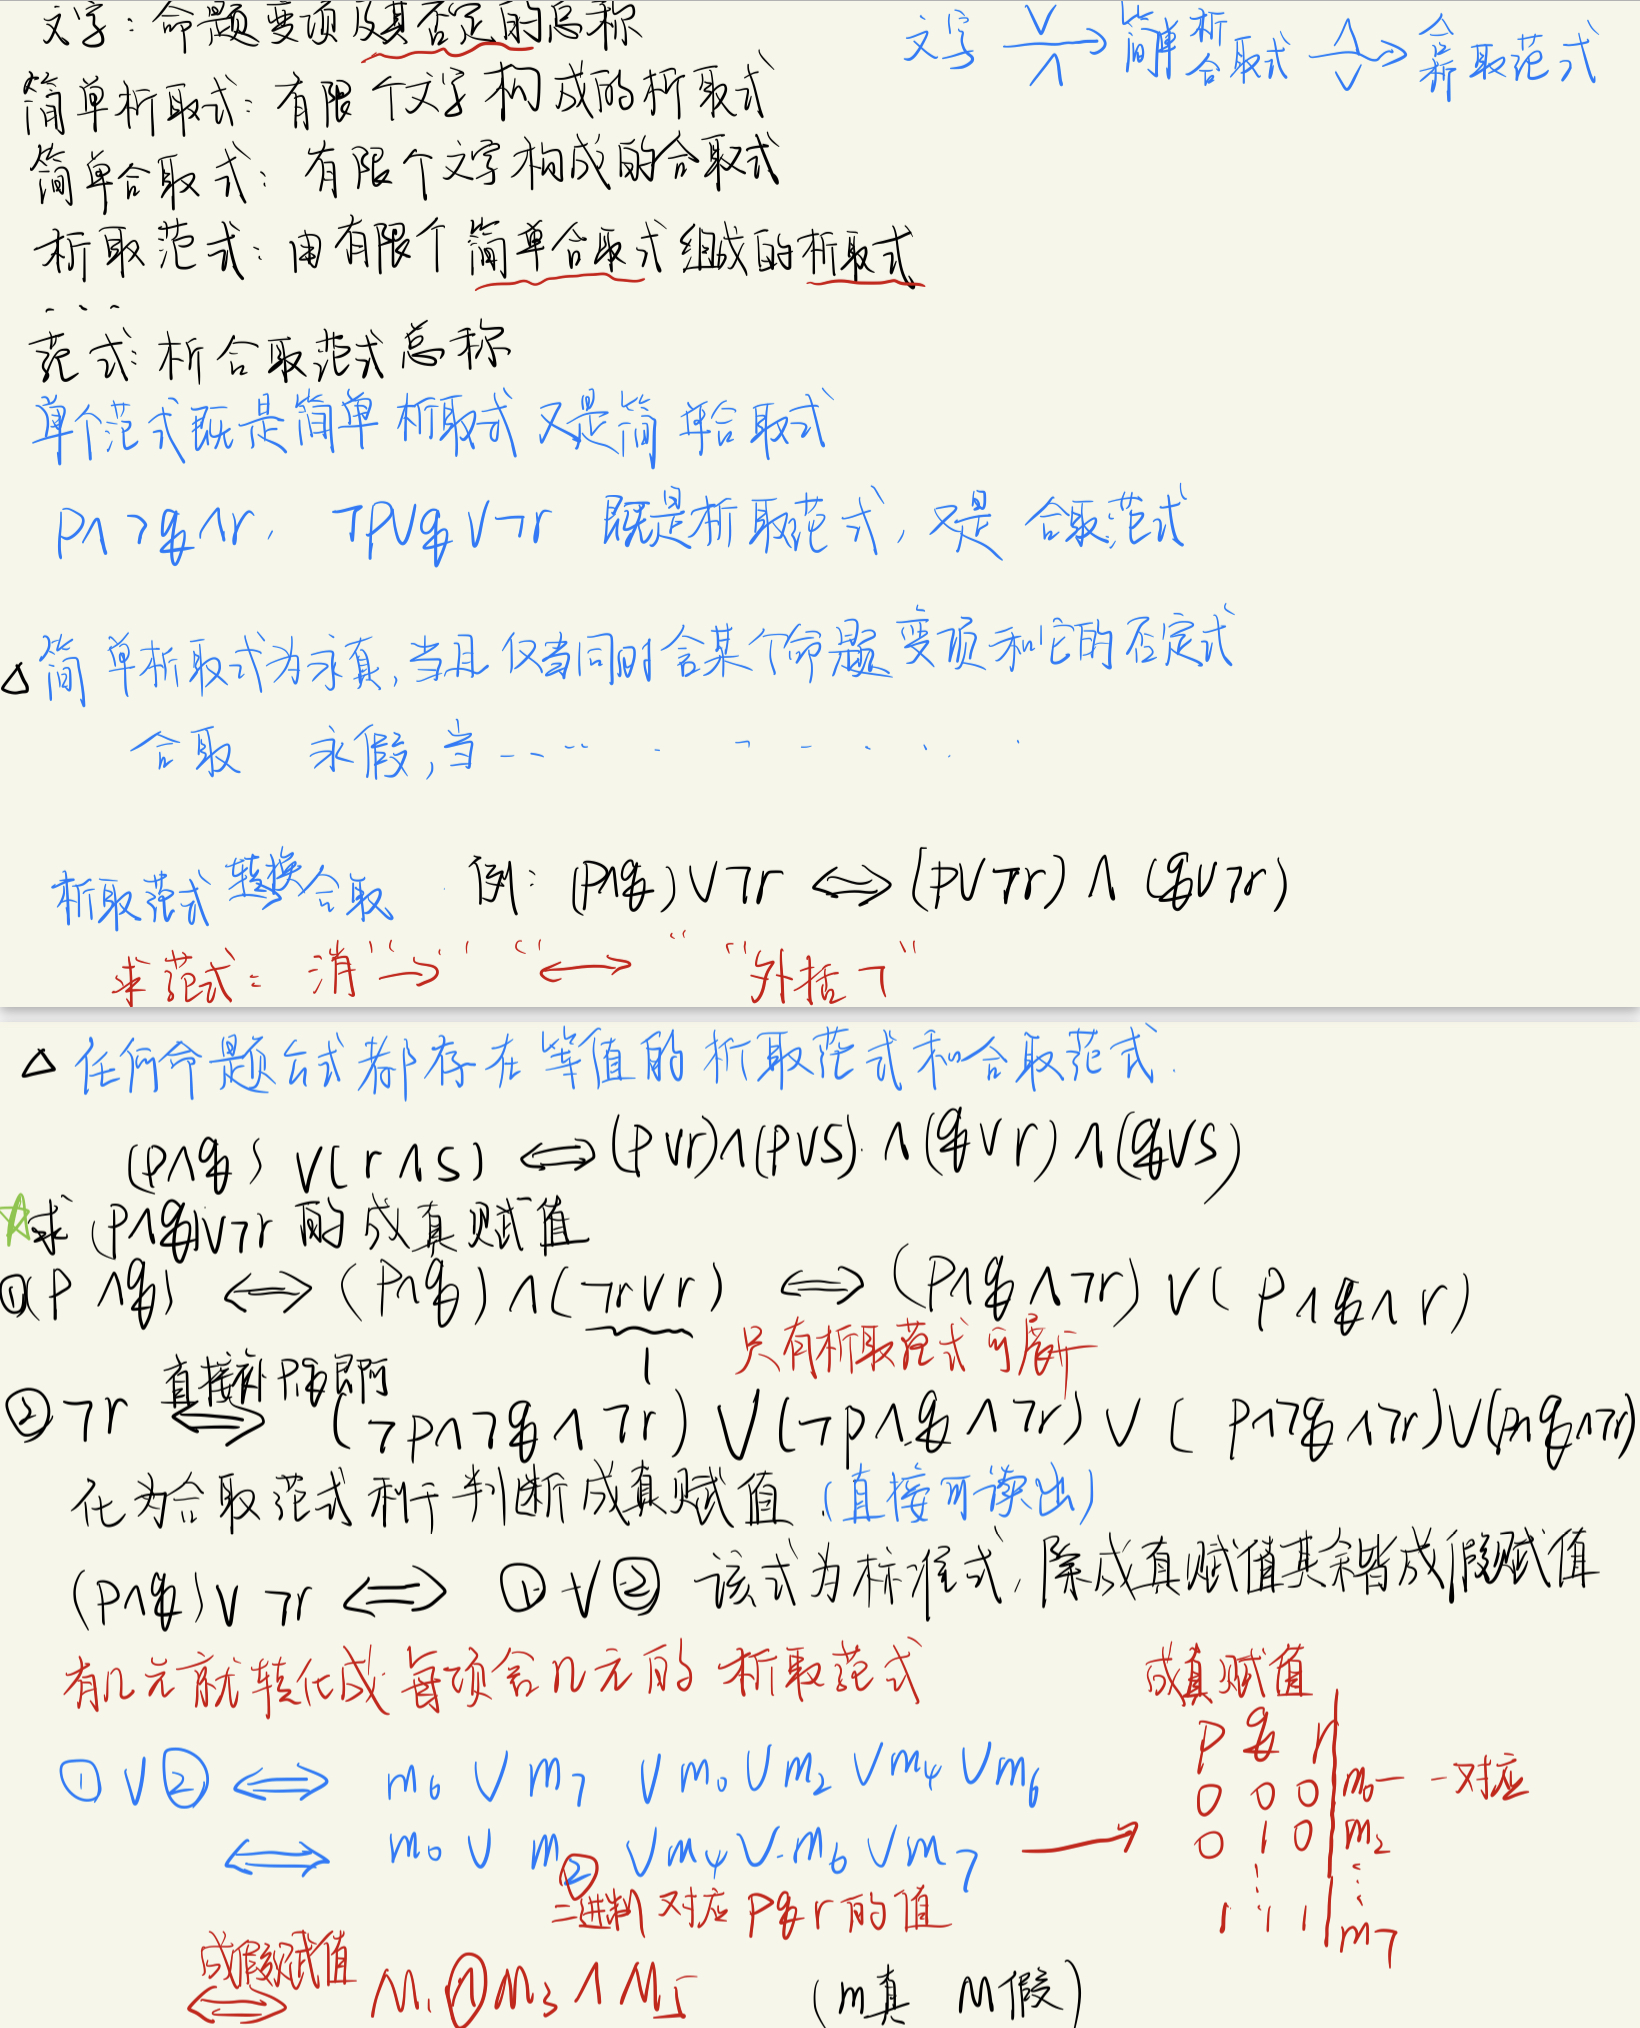 文字：命题变项及其否定的总称
文字 ∨→ ∧ 简单析合取式 ∧→ ∨ 合析取范式
简单析取式：有限个文字构成的析取式
简单合取式：有限个文字构成的合取式
析取范式：由有限个简单合取式组成的析取式
...
范式：析合取范式总称
单个范式既是简单析取式又是简单合取式
p∧¬q∧r, ¬p∨q∨¬r 既是析取范式，又是合取范式
△简单析取式为永真，当且仅当同时含某个命题变项和它的否定式
合取 永假，当……
析取范式 转换 合取 例：(p∧q)∨¬r ⟺ (p∨¬r)∧(q∨¬r)
求范式：消“→” “↔” “外括¬”
△ 任何命题公式都存在等值的析取范式和合取范式.
(p∧q)∨(r∧s) ⟺ (p∨r)∧(p∨s)∧(q∨r)∧(q∨s)
☆求(p∧q)∨¬r的成真赋值
①(p∧q) ⟺ (p∧q)∧(¬r∨r) ⟺ (p∧q∧¬r)∨(p∧q∧r)
1 只有析取范式可展开
直接补pq即可
②¬r ⟺ (¬p∧¬q∧¬r)∨(¬p∧q∧¬r)∨(p∧¬q∧¬r)∨(p∧q∧¬r)
化为合取范式利于判断成真赋值（直接可读出）
(p∧q)∨¬r ⟺ ①∨② 该式为标准式，除成真赋值其余皆成假赋值
有几元就转化成每项含几元的析取范式
成真赋值
p q r
①∨② ⟺ m6∨m7∨m0∨m2∨m4∨m6
0 0 0 m0 一一对应
⟺ m0∨m2∨m4∨m6∨m7 →
0 1 0 m2
二进制对应pqr的值
⋮ ⋮
1 1 1 m7
成假赋值
⟺ M1∧M3∧M5 (m真 M假)